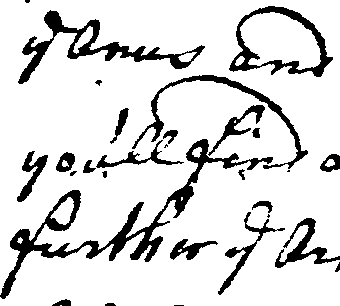 yᵉ Anus and
you'll find
further yᵉ